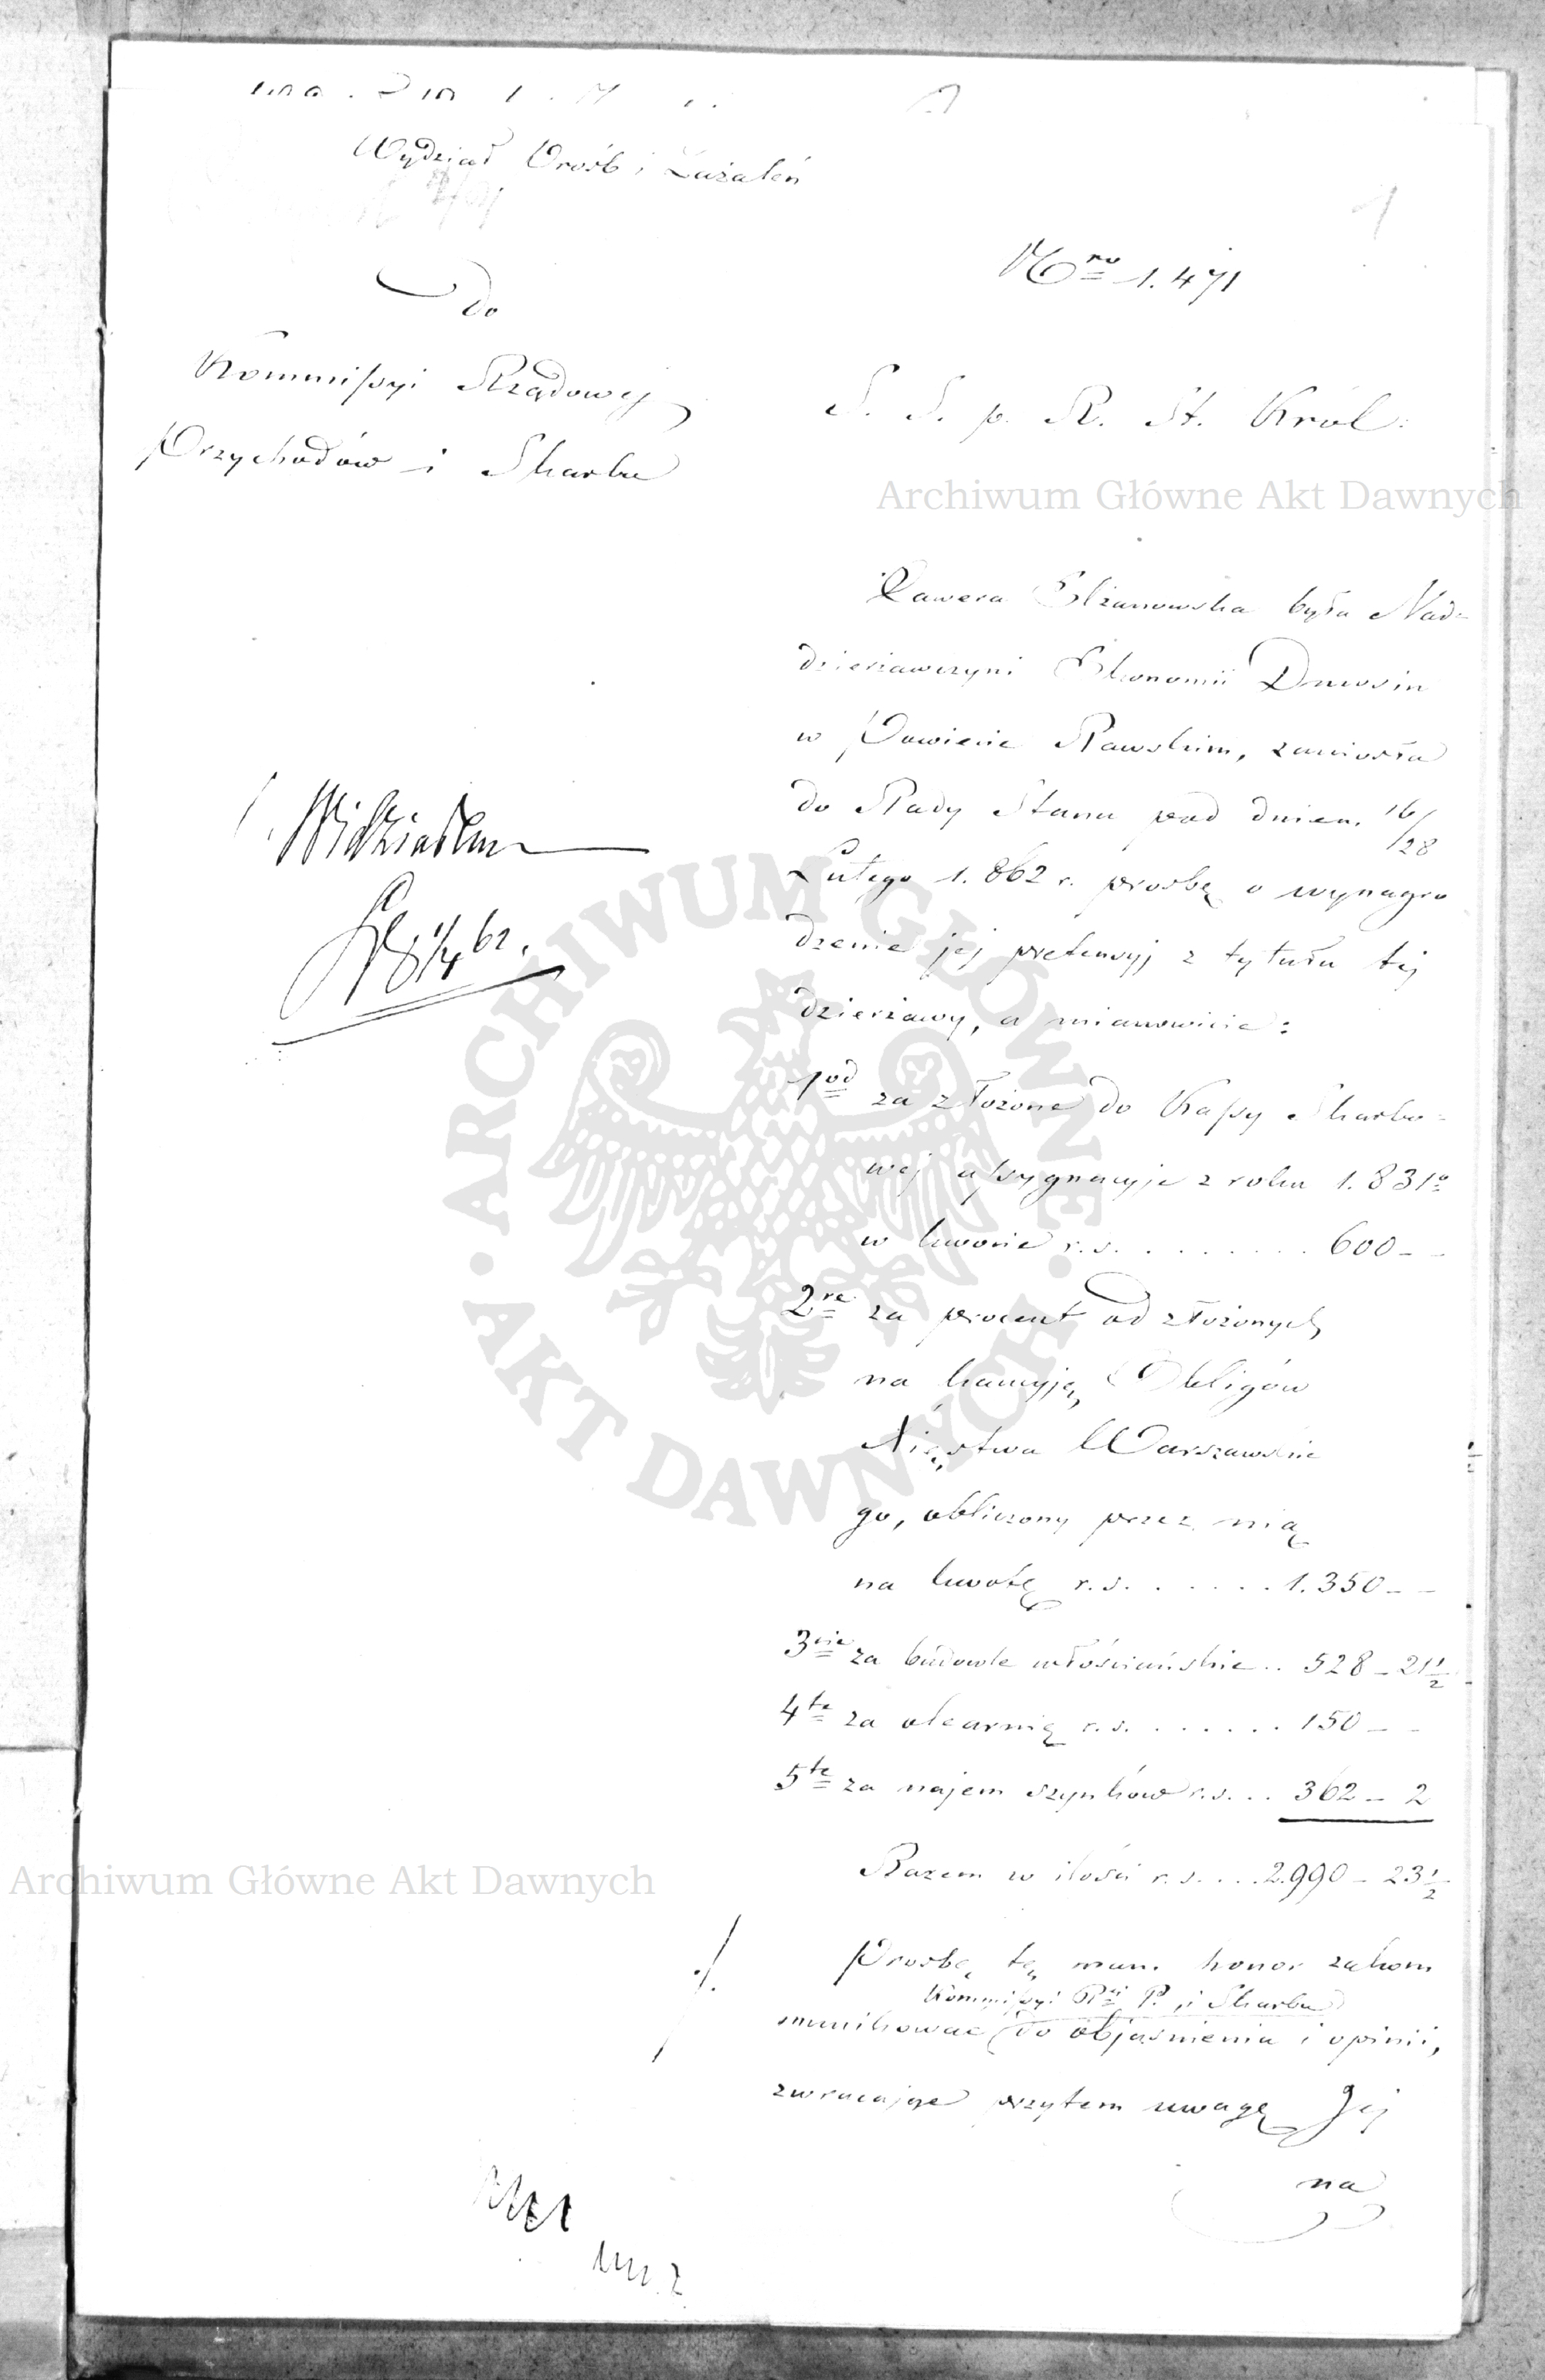 Wydział Próśb i Zażaleń
1
do
Kommissyi Rządowej
Przychodów i Skarbu
Nro 1.471
S. S. p. R. St. Król:
Archiwum Główne Akt Dawnych
Xawera Elżanowska była Nad-
dzierżawczyni Ekonomii Dmosin
w Powiecie Rawskim, zaniosła
do Rady Stanu pod dniem 16/28
Lutego 1.862 r. prośbę o wynagro
dzenie jej pretensyj z tytułu tej
dzierżawy, a mianowicie:
1od za złożone do Kassy Skarbo-
wej assygnacyje z roku 1.831o
w kwocie r.s. . . . . . . . . 600 - -
2re za procent od złożonych
na kaucyję Obligów
Xięstwa Warszawskie
go, obliczony przez nią
na kwotę r.s. . . . . . . 1.350 - -
3cie za budowle włościańskie . . 528 - 21 1/2
4te za olearnię r.s. . . . . . . 150 - -
5te za najem szynków r.s. . . 362 - 2
Razem w ilości r.s. . . . 2.990 - 23 1/2
Prośbę tę mam honor zakom
Kommissyi Rej P. i Skarbu
munikować do objaśnienia i opinii,
zwracając przytem uwagę Jej
na
Widziałem
1/4 62.
ARCHIWUM GŁÓWNE AKT DAWNYCH
Archiwum Główne Akt Dawnych